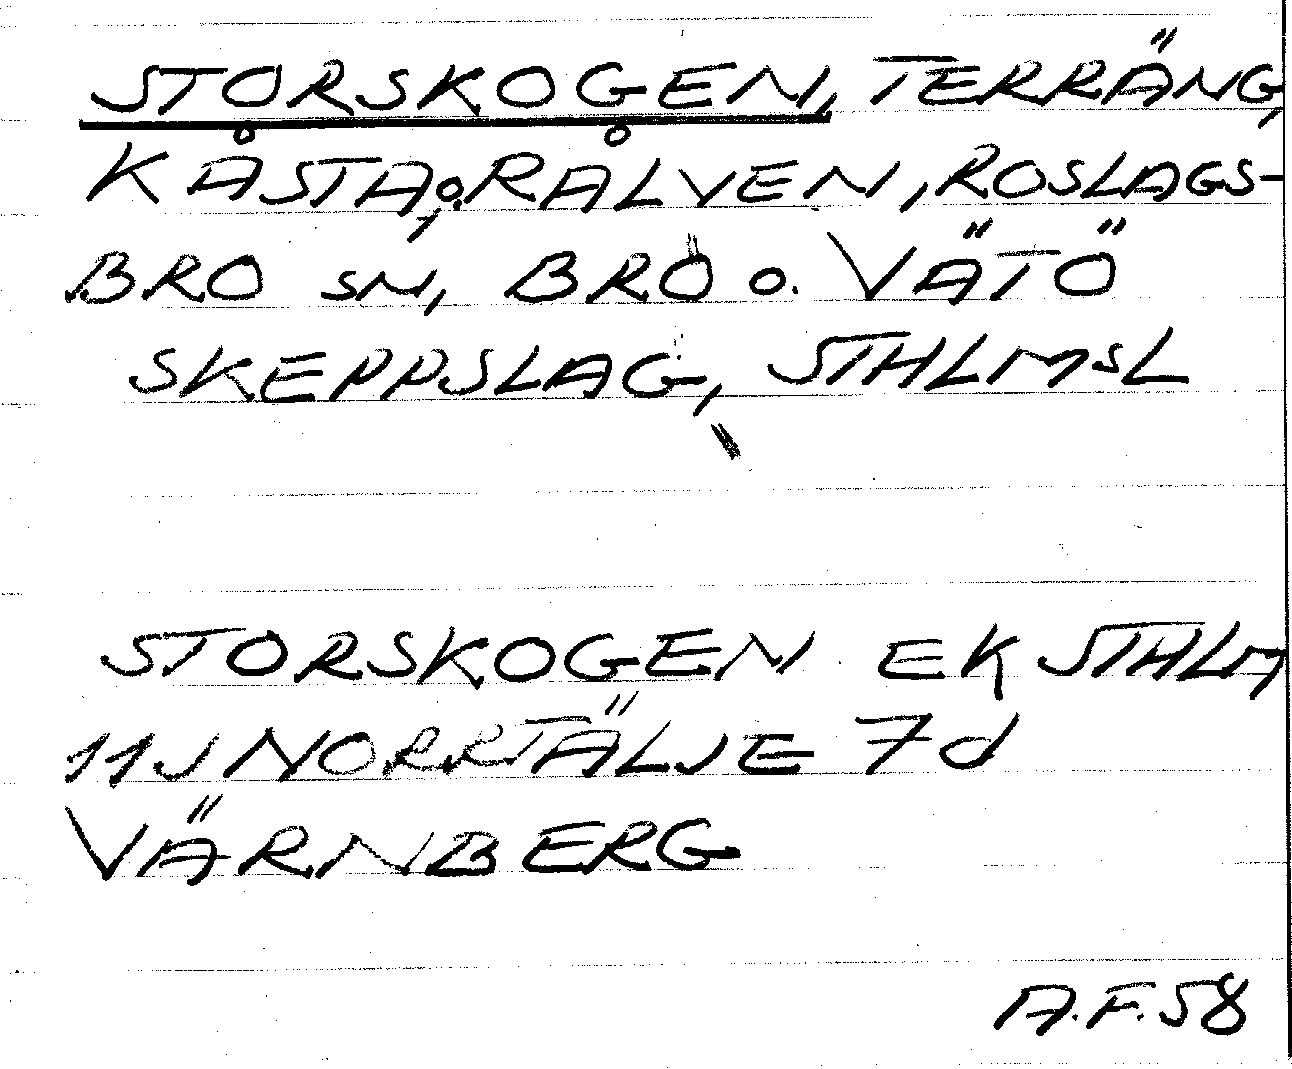 STORSKOGEN, TERRÄNG,
KÅSTA, o. RÅLVEN, ROSLAGS-
BRO SN, BRO o. VÄTÖ
SKEPPSLAG, STHLMSL
STORSKOGEN EK STHLM
11J NORRTÄLJE 7d
VÄRNBERG
A.F. 58